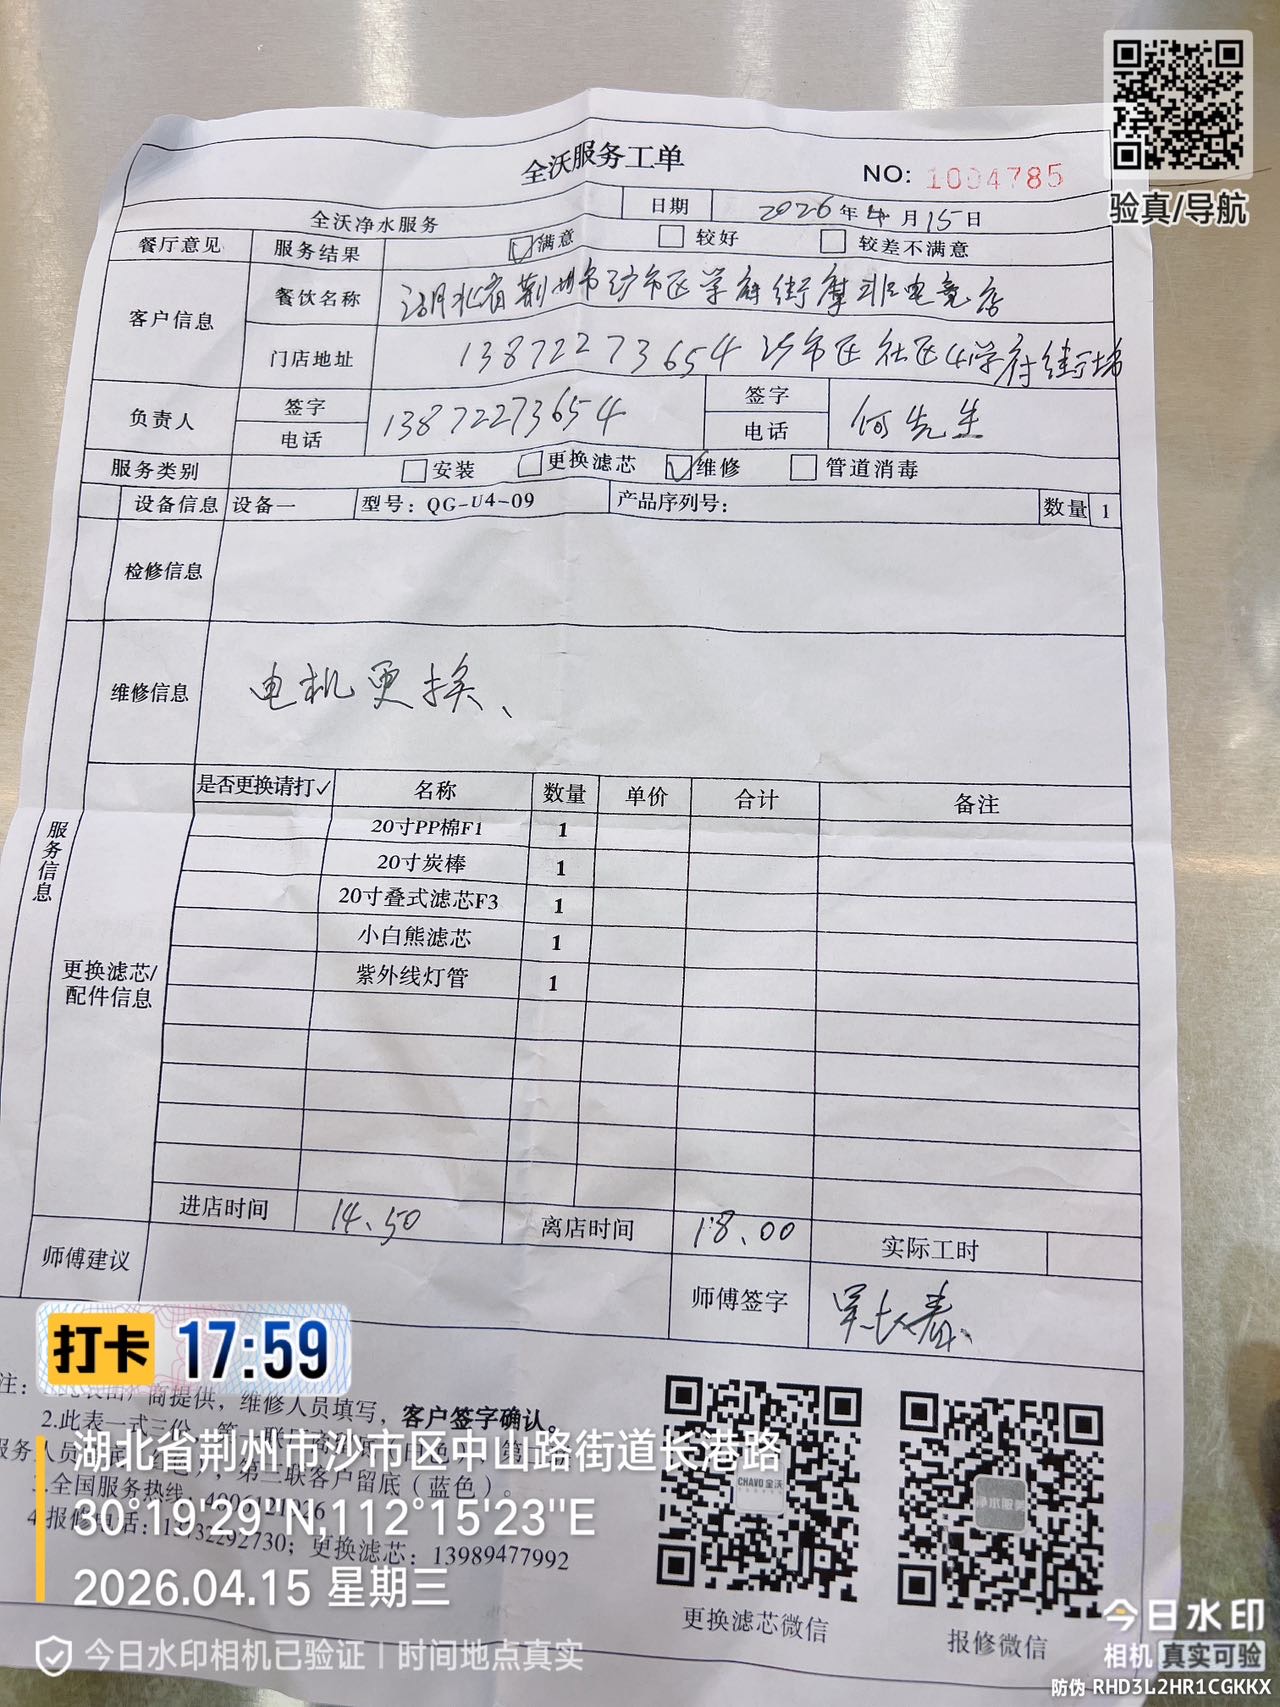 验真/导航
全沃服务工单
NO: 1004785
全沃净水服务 日期 2026年4月15日
餐厅意见 服务结果 满意 较好 较差不满意
客户信息 餐饮名称 湖北省荆州市沙市区学府街摩非电竞店
门店地址 13872273654 沙市区社区4学府街
负责人 签字 电话 13872273654 签字 电话 何先生
服务类别 安装 更换滤芯 维修 管道消毒
设备信息 设备一 型号：QG-U4-09 产品序列号： 数量 1
检修信息
维修信息 电机更换、
服务信息
更换滤芯/配件信息
是否更换请打✓ 名称 数量 单价 合计 备注
20寸PP棉F1 1
20寸炭棒 1
20寸叠式滤芯F3 1
小白熊滤芯 1
紫外线灯管 1
进店时间 14.50 离店时间 18.00 实际工时
师傅建议 师傅签字
打卡 17:59
注：商提供，维修人员填写，客户签字确认。
2.此表一式三份
第三联客户留底（蓝色）。
全国服务热线
报修电话： 更换滤芯：13989477992
湖北省荆州市沙市区中山路街道长港路
30°19'29"N,112°15'23"E
2026.04.15 星期三
今日水印相机已验证 时间地点真实
CHAVO全沃
净水服务
更换滤芯微信
报修微信
今日水印
相机 真实可验
防伪 RHD3L2HR1CGKKX